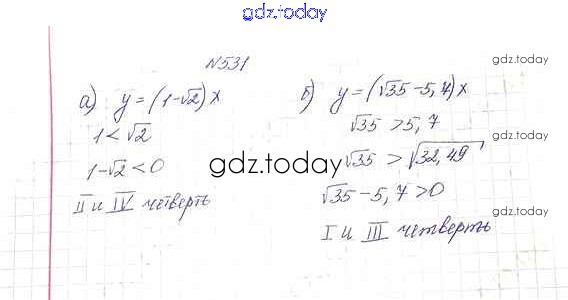 gdz.today
№531
gdz.today
а) y = (1-√2)x
1 < √2
1-√2 < 0
II и IV четверть
б) y = (√35 - 5,7)x
√35 > 5,7
√35 > √32,49
√35 - 5,7 > 0
I и III четверть
gdz.today
gdz.today
gdz.today